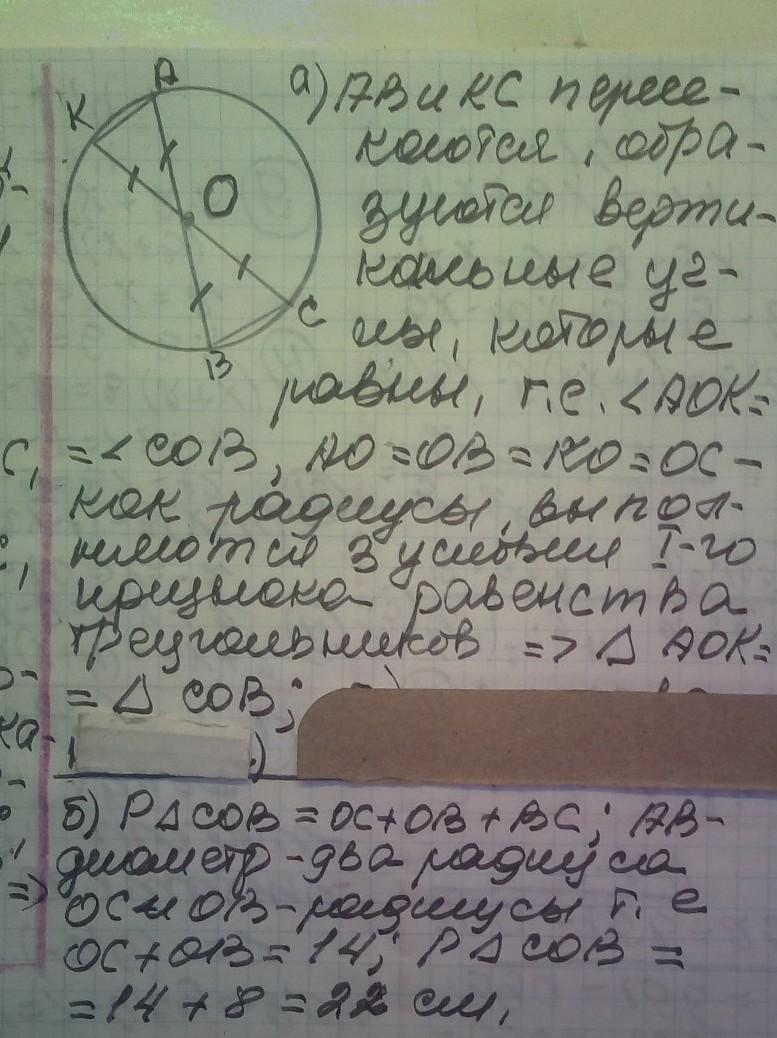 A
K
O
C
B
а) AB и KC пересе-
каются, обра-
зуются верти-
кальные уг-
лы, которые
равны, т.е. <AOK=
=<COB, AO=OB=KO=OC-
как радиусы, выпол-
няются 3 условия I-го
признака равенства
треугольников => Δ AOK=
= Δ COB;
б) PΔCOB=OC+OB+BC; AB-
диаметр-два радиуса
OC и OB-радиусы т.е
OC+OB=14; PΔCOB=
=14+8=22 см,